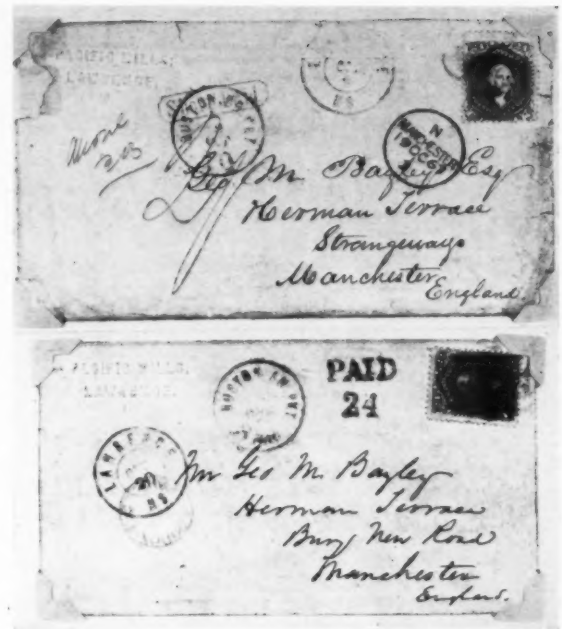 PACIFIC MILLS,
LAWRENCE.
BOSTON BR. PKT
MANCHESTER
N
19 OC 67
Geo M. Bayley Esq
Herman Terrace
Strangeways
Manchester
England.
PACIFIC MILLS,
LAWRENCE.
BOSTON AM. PKT
PAID
24
LAWRENCE
Mr Geo M. Bayley
Herman Terrace
Bury New Road
Manchester
England.